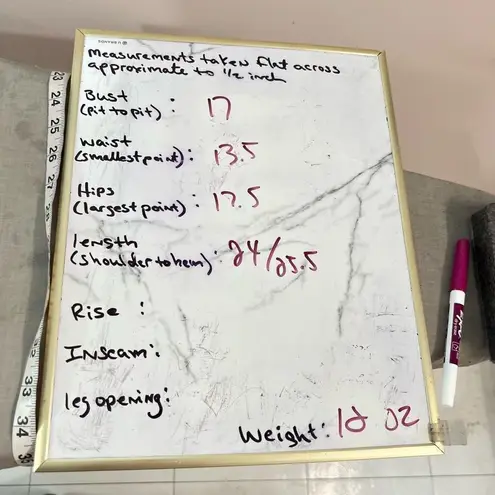 Measurements taken flat across
approximate to 1/2 inch
Bust
(pit to pit) : 17
Waist
(smallest point) : 13.5
Hips
(largest point) : 17.5
length
(shoulder to hem) : 24/25.5
Rise :
Inseam :
leg opening :
Weight : 12 oz
23
24
25
26
27
33
34